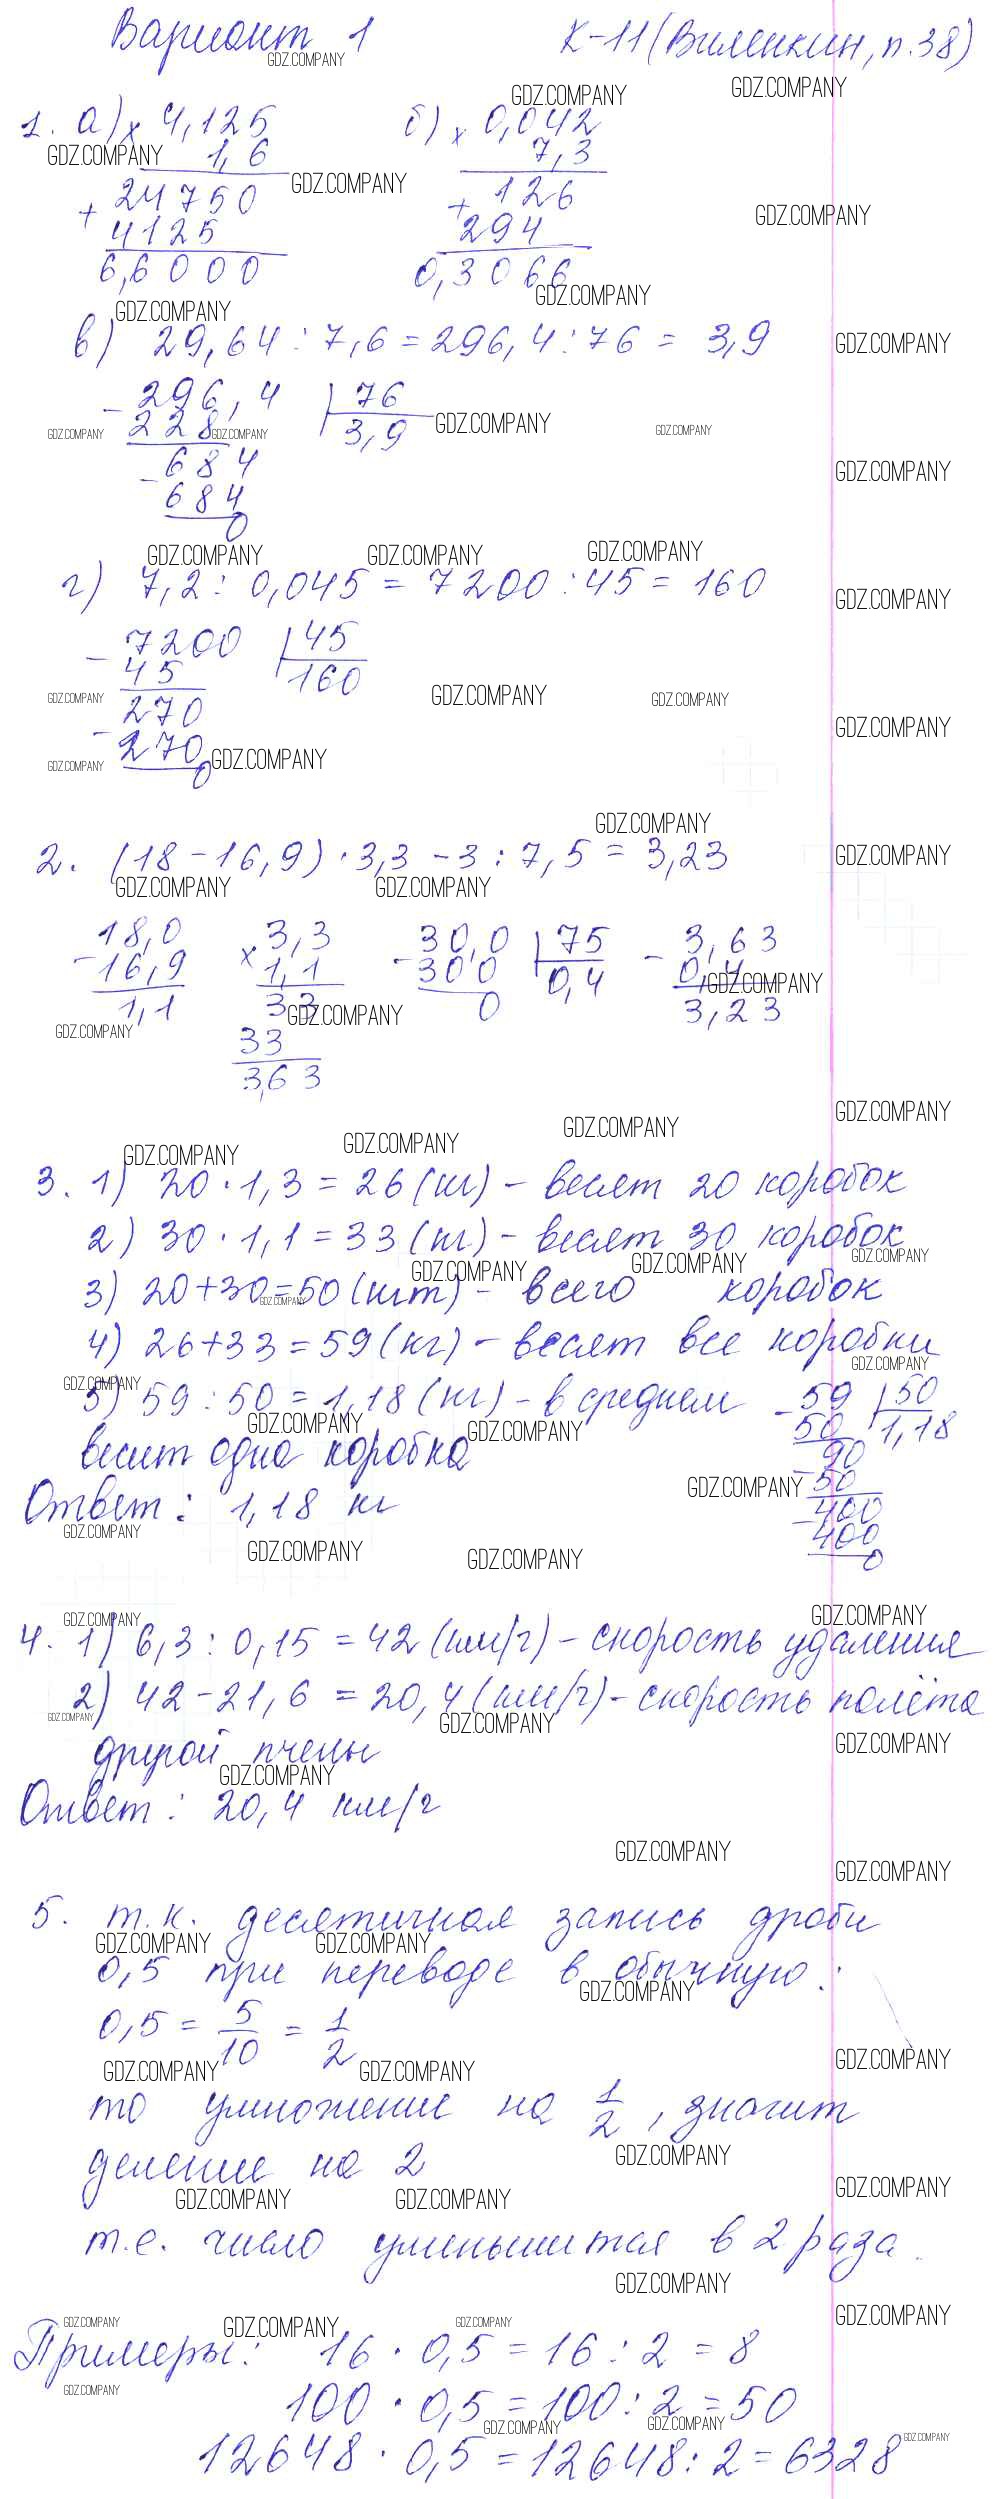 Вариант 1 К-11 (Виленкин, п.38)
1. а) х 4,125 б) х 0,042
1,6 7,3
+ 24750 + 126
4125 294
6,6000 0,3066
в) 29,64 : 7,6 = 296,4 : 76 = 3,9
- 296,4 | 76
228 3,9
- 684
684
0
г) 7,2 : 0,045 = 7200 : 45 = 160
- 7200 | 45
45 160
- 270
270
0
2. (18 - 16,9) · 3,3 - 3 : 7,5 = 3,23
- 18,0 х 3,3 - 30,0 | 75 - 3,63
16,9 1,1 300 0,4 0,4
1,1 33 0 3,23
33
3,63
3. 1) 20 · 1,3 = 26 (кг) - весят 20 коробок
2) 30 · 1,1 = 33 (кг) - весят 30 коробок
3) 20 + 30 = 50 (шт) - всего коробок
4) 26 + 33 = 59 (кг) - весят все коробки
5) 59 : 50 = 1,18 (кг) - в среднем - 59 | 50
весит одна коробка 50 1,18
- 90
Ответ: 1,18 кг 50
- 400
400
0
4. 1) 6,3 : 0,15 = 42 (км/ч) - скорость удаления
2) 42 - 21,6 = 20,4 (км/ч) - скорость полёта
другой пчелы
Ответ: 20,4 км/ч
5. т.к. десятичная запись дроби
0,5 при переводе в обычную:
0,5 = 5/10 = 1/2
то умножение на 1/2, значит
деление на 2
т.е. число уменьшится в 2 раза.
Примеры: 16 · 0,5 = 16 : 2 = 8
100 · 0,5 = 100 : 2 = 50
12648 · 0,5 = 12648 : 2 = 6328
GDZ.COMPANY